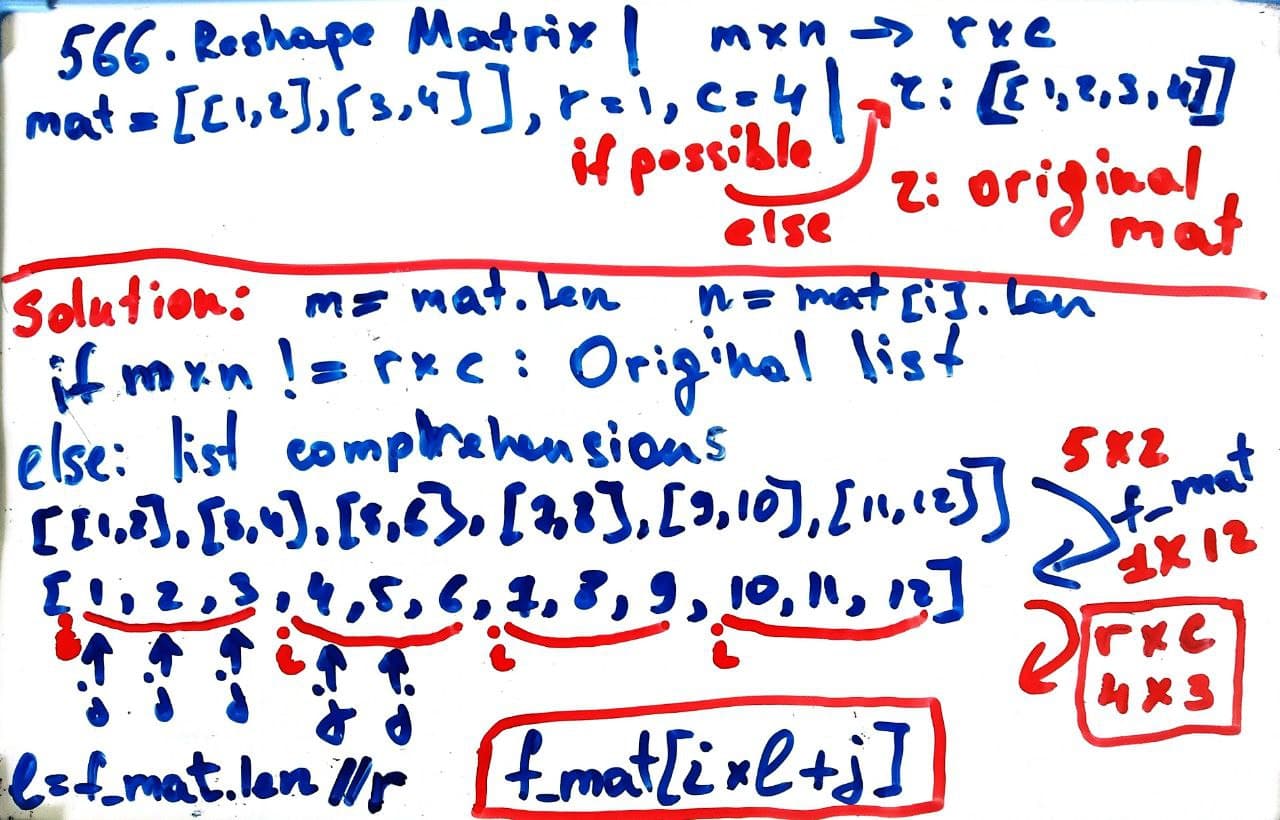 566. Reshape Matrix | m x n → r x c
mat = [[1,2],[3,4]], r=1, c=4 | r: [[1,2,3,4]]
if possible
else
r: original
mat
Solution: m= mat.len n= mat[i].len
if m x n != r x c : Original list
else: list comprehensions
[[1,2],[3,4],[5,6],[7,8],[9,10],[11,12]]
5x2
f_mat
1x12
[1,2,3,4,5,6,7,8,9,10,11,12]
i i i i
j j j j j
r x c
4x3
l=f_mat.len//r
f_mat[i x l + j]